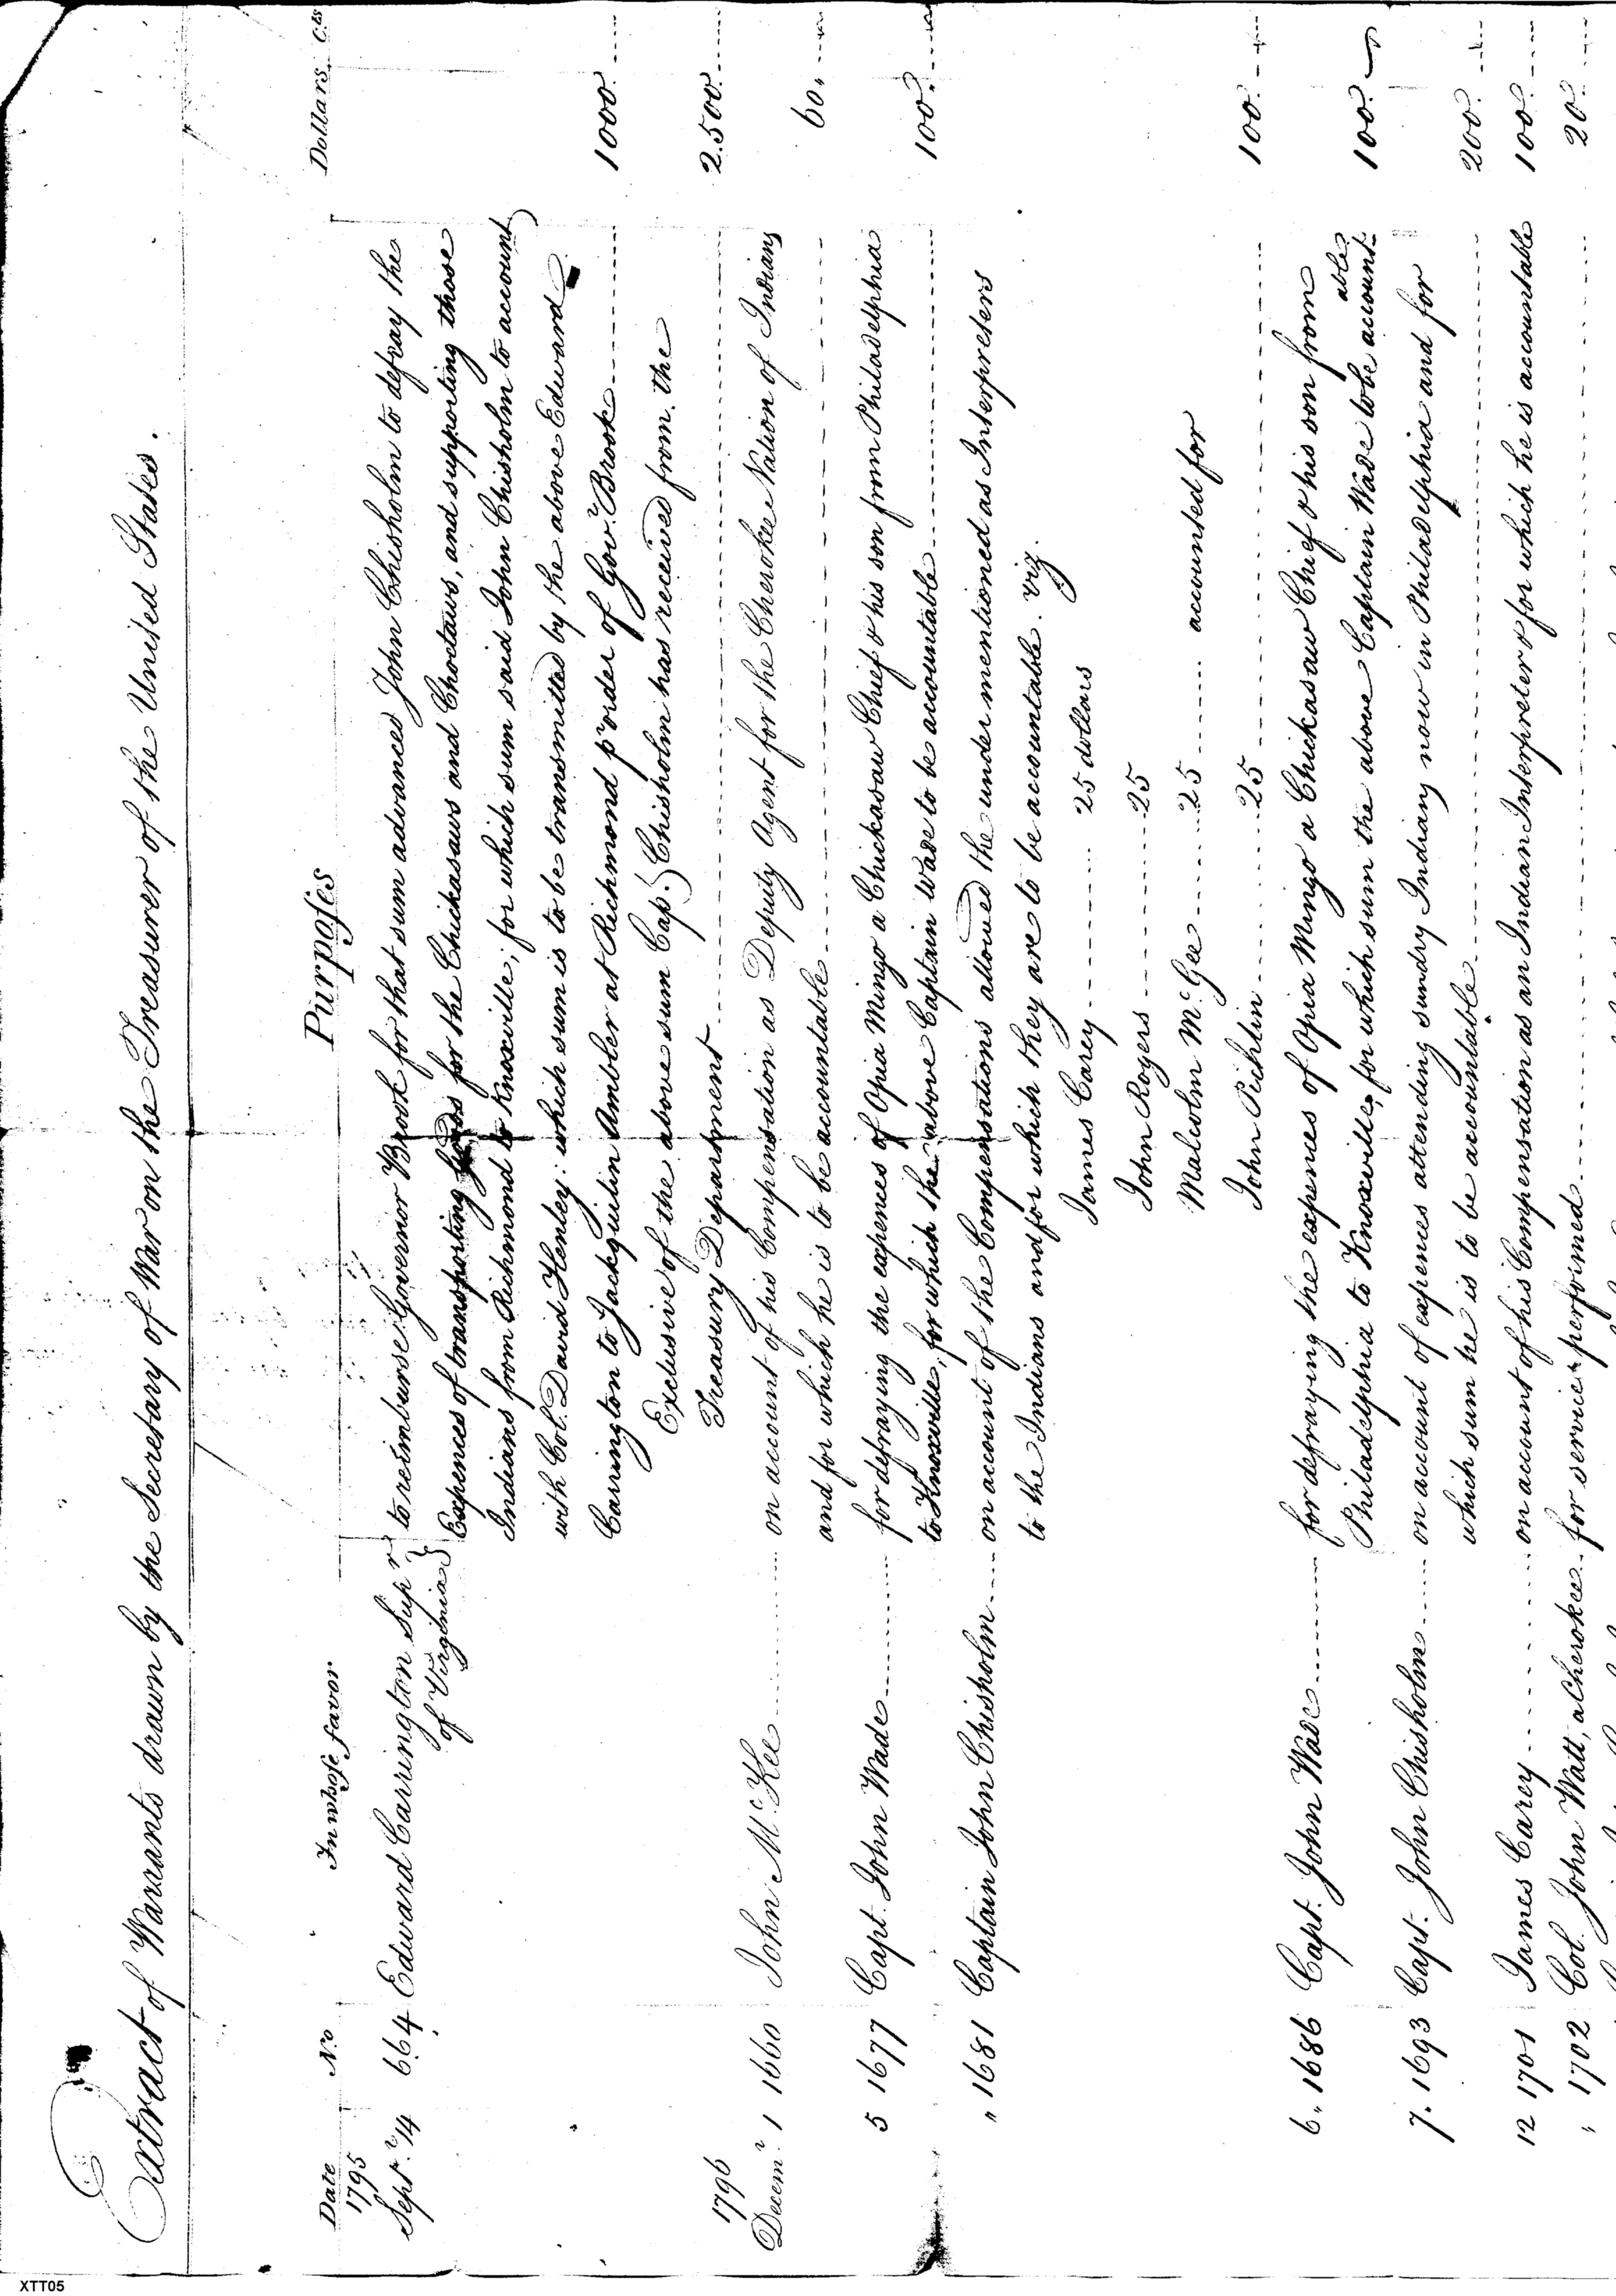 Extract of Warrants drawn by the Secretary of War on the Treasurer of the United States.
Date No. In whose favor Purposes Dollars C.ts
1795
Sept.r 14 664 Edward Carrington Sup.r to reimburse Governor Brook for that sum advanced John Chisholm to defray the
of Virginia } Expences of transporting goods for the Chickasaws and Choctaws, and supporting those
Indians from Richmond to Knoxville; for which sum said John Chisholm to account
with Col. David Henley: which sum is to be transmitted by the above Edward
Carrington to Jackquilin Ambler at Richmond p.r order of Gov.r Brook 1000.
Exclusive of the above sum Cap.t Chisholm has received from the
Treasury Department 2.500.
1796
Decem.r 1 1660 John McKee on account of his Compensation as Deputy Agent for the Cherokee Nation of Indians
and for which he is to be accountable 60.
5 1677 Capt. John Wade for defraying the expences of Opia Mingo a Chickasaw Chief & his son from Philadelphia
to Knoxville; for which the above Captain Wade to be accountable 100.
" 1681 Captain John Chisholm on account of the Compensations allowed the undermentioned as Interpreters
to the Indians and for which they are to be accountable. viz.
James Carey 25 dollars
John Rogers 25
Malcolm McGee 25 accounted for
John Pichlin 25 100.
6. 1686 Capt. John Wade for defraying the expences of Opia Mingo a Chickasaw Chief & his son from
Philadelphia to Knoxville; for which sum the above Captain Wade to be accountable 100.
7. 1693 Capt. John Chisholm on account of expences attending sundry Indians now in Philadelphia and for
which sum he is to be accountable 200.
12 1701 James Carey on account of his Compensation as an Indian Interpreter & for which he is accountable 100.
" 1702 Col. John Watt, a Cherokee for services performed 20.
XTT05